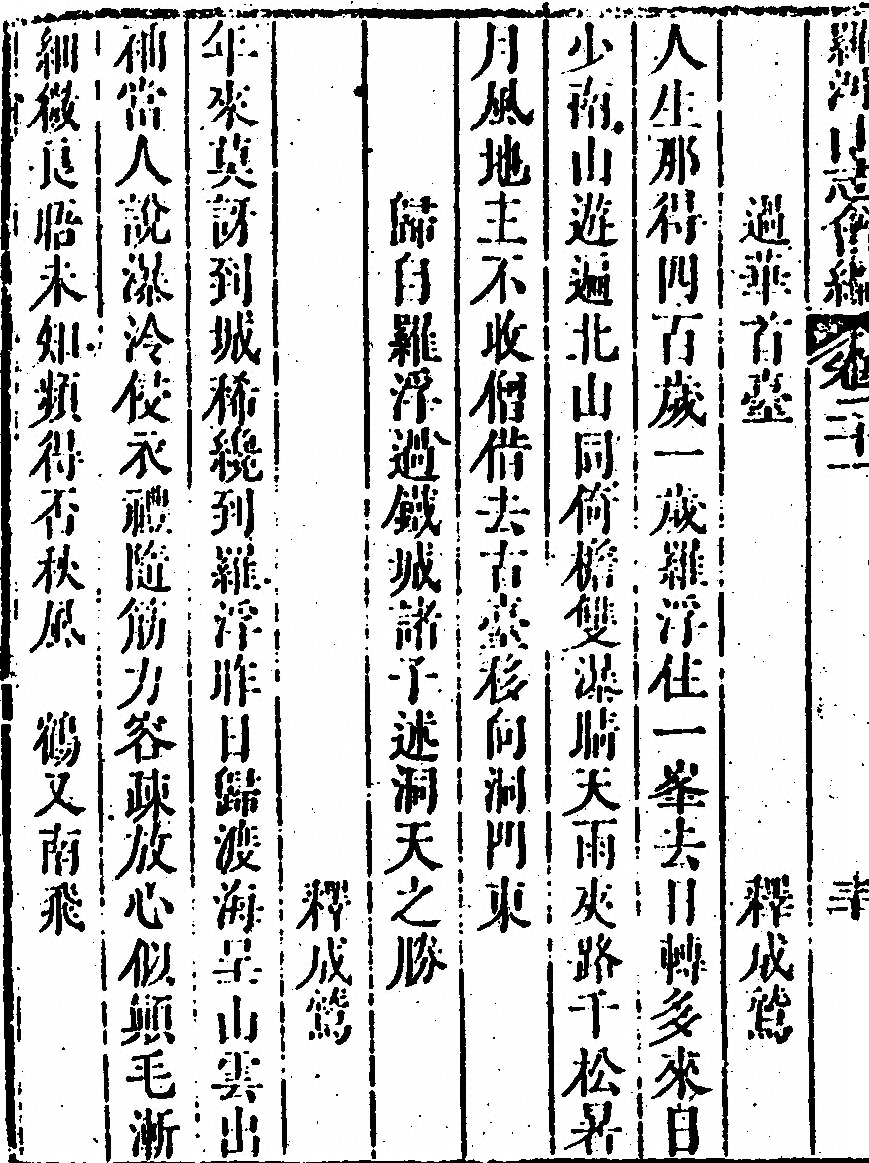 羅浮山志會編 卷二十一 三十
過華首臺 釋成鷲
人生那得四百歲一歲羅浮住一峯去日轉多來日
少南山遊遍北山同倚檐雙瀑晴天雨夾路千松暑
月風地主不收僧借去古臺移向洞門東
歸自羅浮過鐵城諸子述洞天之勝
釋成鷲
年來莫訝到城稀纔到羅浮昨日歸渡海呈山雲出
袖當人說瀑冷侵衣禮隨筋力容疎放心似顛毛漸
細微良晤未知頻得否秋風 鶴又南飛